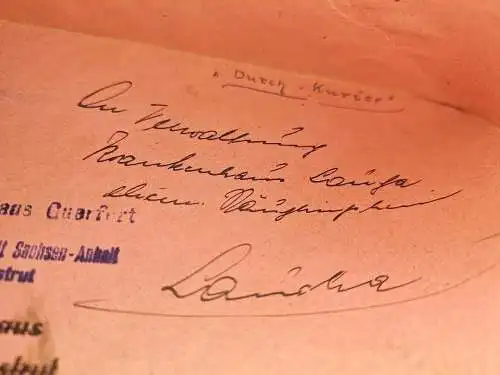 "Durch Kurier"
An Verwaltung
Krankenhaus Laucha
Laucha
aus Querfurt
t Sachsen-Anhalt
strut
aus
strut